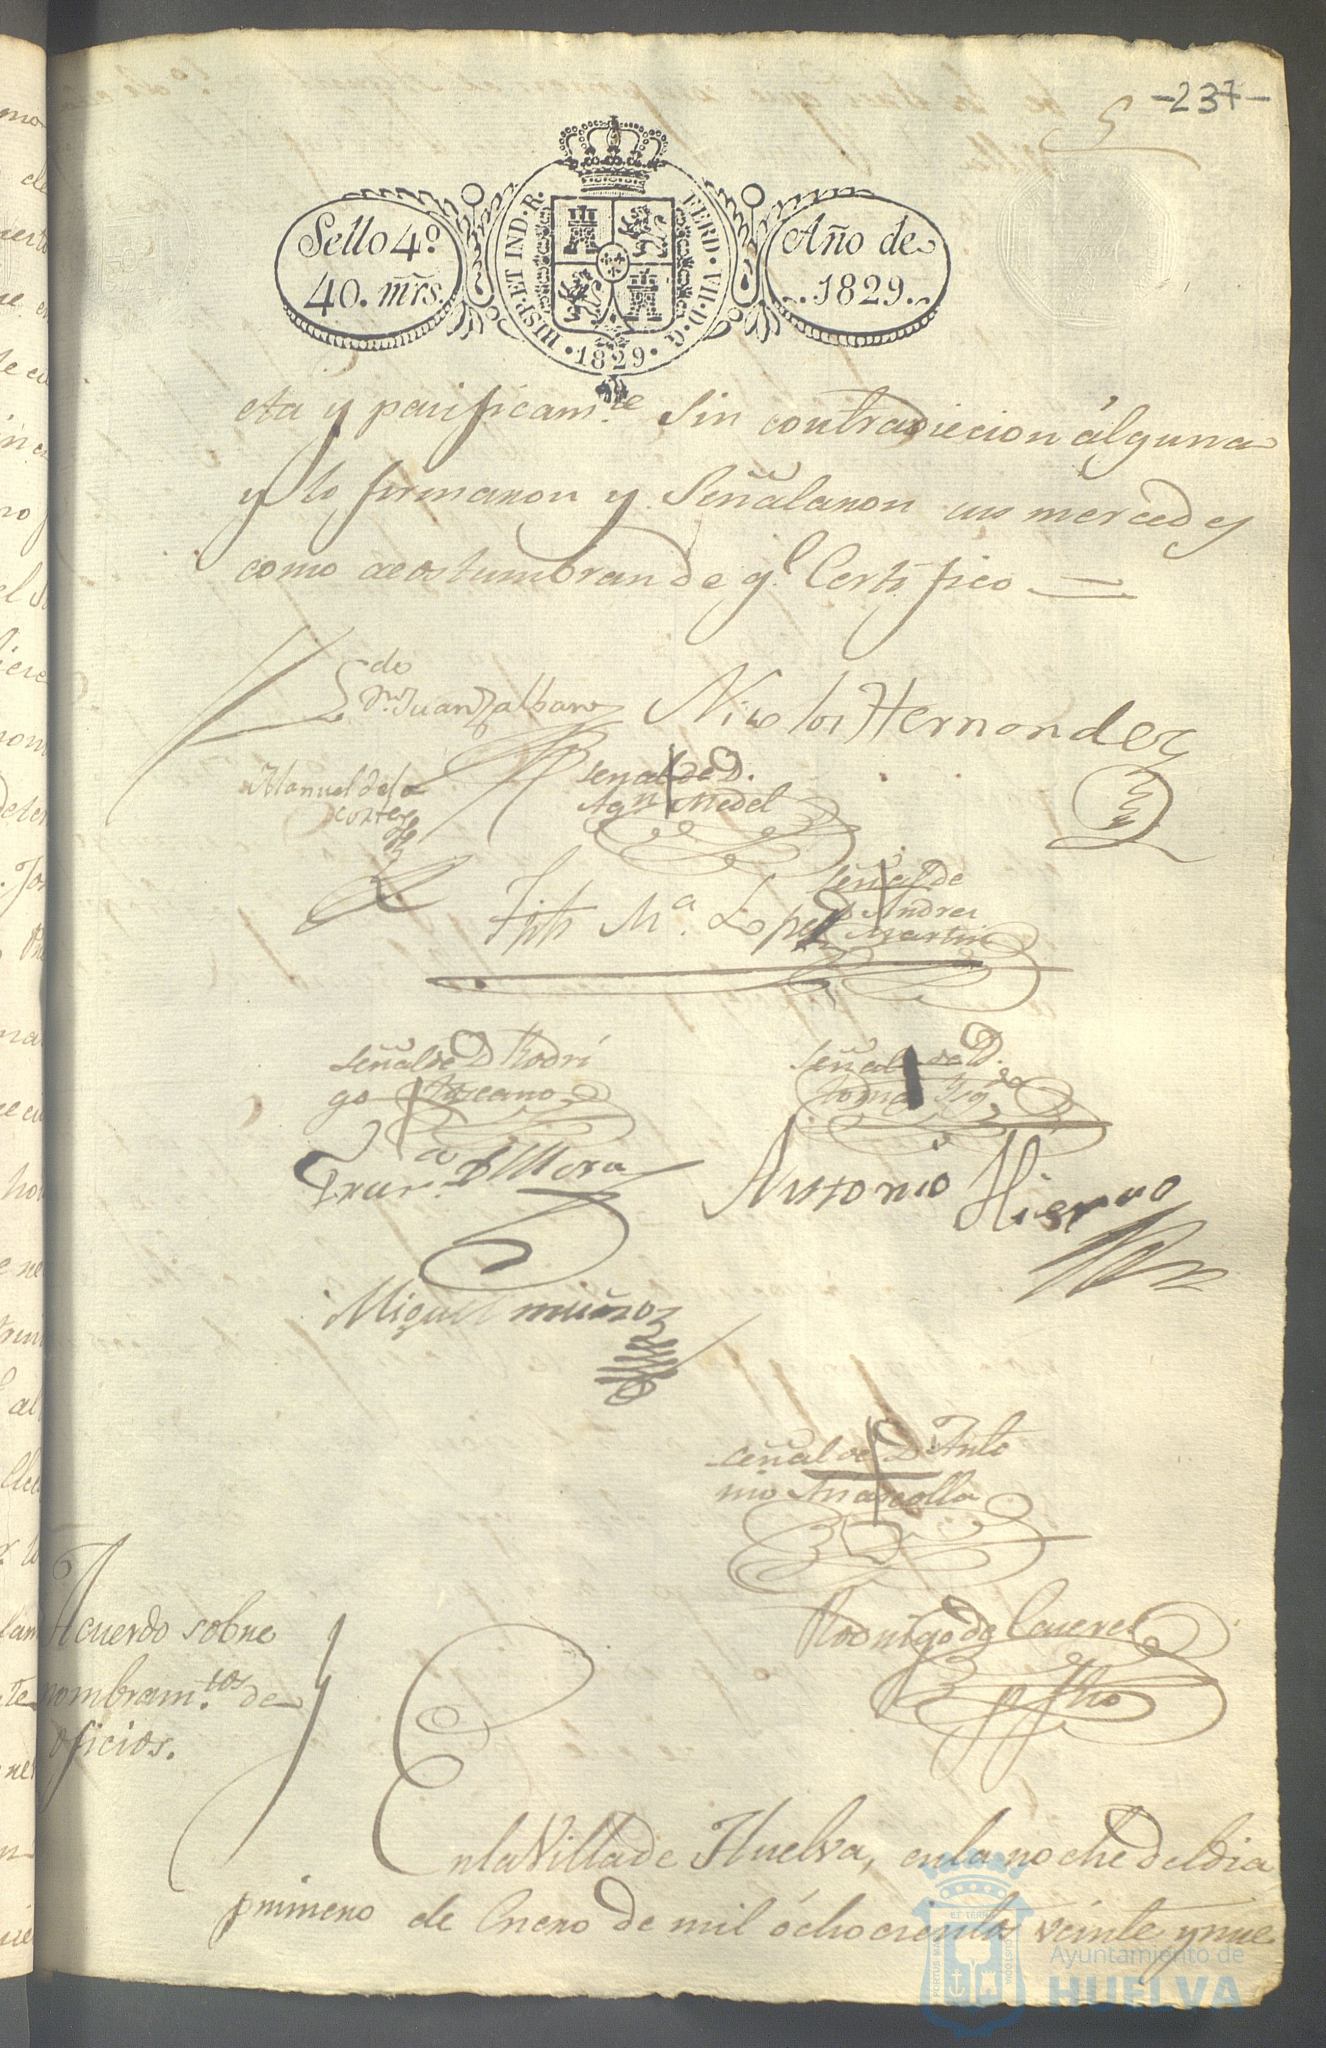 -237-
Sello 4º
40. mrs.
HISP. ET IND. R.
FERD. VII. D. G.
1829
Año de
1829.
eta y pacificam.te sin contradiccion álguna
y lo firmaron y Señalaron sus mercedes
como acostumbran de q.e Certifico
Ldo
Dn. Juan Zalbano
Nicolos Hernondez
Manuel de la
Corte
señal de D.
Agn Medel
M.a Lopez
señal de
D Andres
Martin
señal de D Rodri
go Toscano
señal de D.
Franca. D Mora
Antonio Hierro
Miguel muñoz
señal de D Anto
nio Mascolla
Rodrigo de
Acuerdo sobre
nombram.tos de
oficios.
En la Villa de Huelva, en la noche del dia
primero de Enero de mil óchocientos veinte y nue
Ayuntamiento de
HUELVA